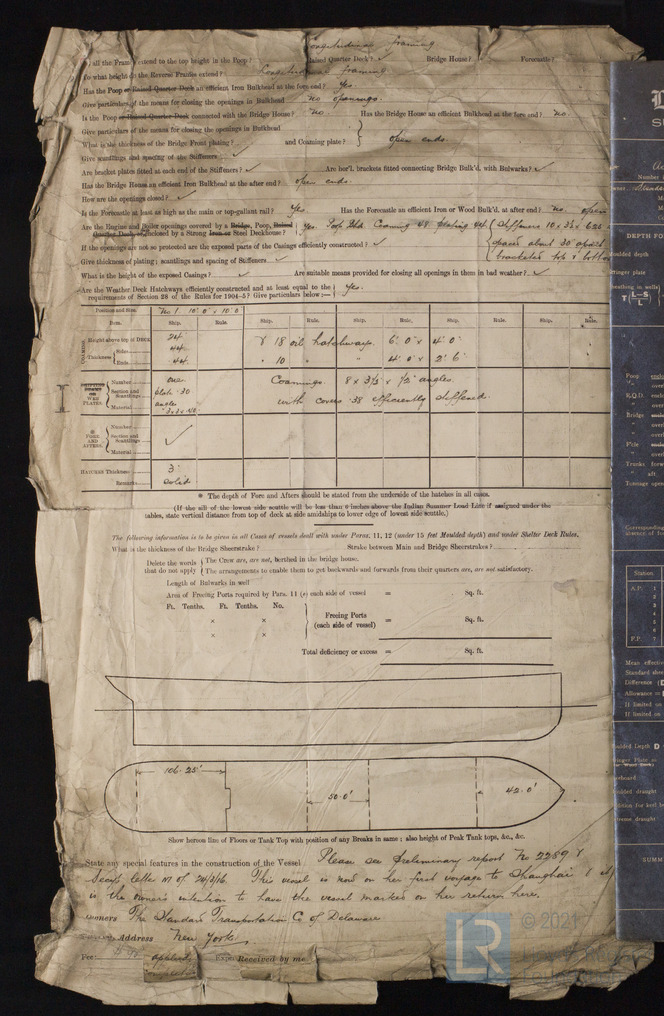 Longitudinal framing
all the Frames extend to the top height in the Poop? Raised Quarter Deck? ✓ Bridge House? Forecastle?
To what height do the Reverse Frames extend? Longitudinal framing
Has the Poop or Raised Quarter Deck an efficient Iron Bulkhead at the fore end? Yes
Give particulars of the means for closing the openings in Bulkhead no openings.
Is the Poop or Raised Quarter Deck connected with the Bridge House? no. Has the Bridge House an efficient Bulkhead at the fore end? no.
Give particulars of the means for closing the openings in Bulkhead
What is the thickness of the Bridge Front plating? and Coaming plate? } open ends.
Give scantlings and spacing of the Stiffeners ✓
Are bracket plates fitted at each end of the Stiffeners? ✓ Are hor'l. brackets fitted connecting Bridge Bulk'd. with Bulwarks? ✓
Has the Bridge House an efficient Iron Bulkhead at the after end? open ends.
How are the openings closed? ✓
Is the Forecastle at least as high as the main or top-gallant rail? Yes. Has the Forecastle an efficient Iron or Wood Bulk'd. at after end? no. open
Are the Engine and Boiler openings covered by a Bridge, Poop, Raised Quarter Deck, or enclosed by a Strong Iron or Steel Deckhouse? } Yes. Poop Bhd Coaming .48 plating .44 { Stiffeners 10 x 3½ x
If the openings are not so protected are the exposed parts of the Casings efficiently constructed? ✓ spaces about 30" apart
Give thickness of plating; scantlings and spacing of Stiffeners ✓ bracketed top & bottom
What is the height of the exposed Casings? ✓ Are suitable means provided for closing all openings in them in bad weather? ✓
Are the Weather Deck Hatchways efficiently constructed and at least equal to the requirements of Section 28 of the Rules for 1904-5? Give particulars below:— } Yes.
Position and Size. No 1. 10' 0" x 10' 0"
Item. Ship. Rule. Ship. Rule. Ship. Rule. Ship. Rule. Ship. Rule.
COAMING Height above top of DECK 24 & 18 oil hatchways. 6' 0" x 4' 0"
Thickness { Sides .44
Ends .44 " 10 " 4' 0" x 2' 6"
WEB PLATES. Number one. Coamings. 8 x 3½ x ½ angles.
Section and Scantlings plate .30 with covers .38 efficiently stiffened.
Material angles 3 x 3 x .40
* FORE AND AFTERS. Number
Section and Scantlings ✓
Material
HATCHES Thickness 3"
Remarks solid
* The depth of Fore and Afters should be stated from the underside of the hatches in all cases.
(If the sill of the lowest side scuttle will be less than 6 inches above the Indian Summer Load Line if assigned under the tables, state vertical distance from top of deck at side amidships to lower edge of lowest side scuttle.)
The following information is to be given in all Cases of vessels dealt with under Paras. 11, 12 (under 15 feet Moulded depth) and under Shelter Deck Rules.
What is the thickness of the Bridge Sheerstrake? Strake between Main and Bridge Sheerstrakes?
Delete the words that do not apply { The Crew are, are not, berthed in the bridge house.
The arrangements to enable them to get backwards and forwards from their quarters are, are not satisfactory.
Length of Bulwarks in well
Area of Freeing Ports required by Para. 11 (e) each side of vessel = Sq. ft.
Ft. Tenths. Ft. Tenths. No.
× Freeing Ports (each side of vessel) = Sq. ft.
×
Total deficiency or excess = Sq. ft.
106·25'
50·0'
42·0'
Show hereon line of Floors or Tank Top with position of any Breaks in same; also height of Peak Tank tops, &c., &c.
State any special features in the construction of the Vessel Please see preliminary report No 2289 &
Secys letter M of 24/3/16. This vessel is now on her first voyage to Shanghai & it
is the owner's intention to have the vessel marked on her return here.
Owners The Standard Transportation Co of Delaware
Address New York.
Fee: applied Received by me
DEPTH FO
Moulded depth
Stringer plate
T L–S
Poop
R.Q.D.
Bridge
F'cle
Trunks for
" aft.
Tonnage open
Corresponding
Station.
A.P. 1
2
3
4
5
6
F.P. 7
Mean effective
Standard shee
Difference
Allowance =
If limited on
If limited on
Moulded Depth
SUMM
LR
© 2021
Lloyd's Register
Foundation